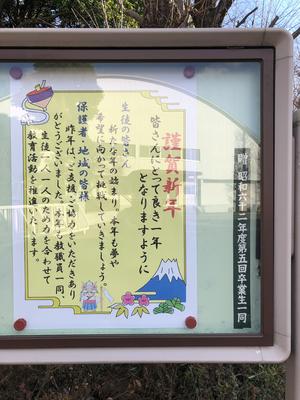 謹賀新年
皆さんにとって良き一年
となりますように
生徒の皆さん
新たな年の始まり。本年も夢や
希望に向かって挑戦していきましょう。
保護者、地域の皆様
昨年は、ご支援・ご協力をいただきあり
がとうございました。本年も教職員一同、
生徒一人一人のため力を合わせて
教育活動を推進いたします。
贈 昭和六十二年度第五回卒業生一同